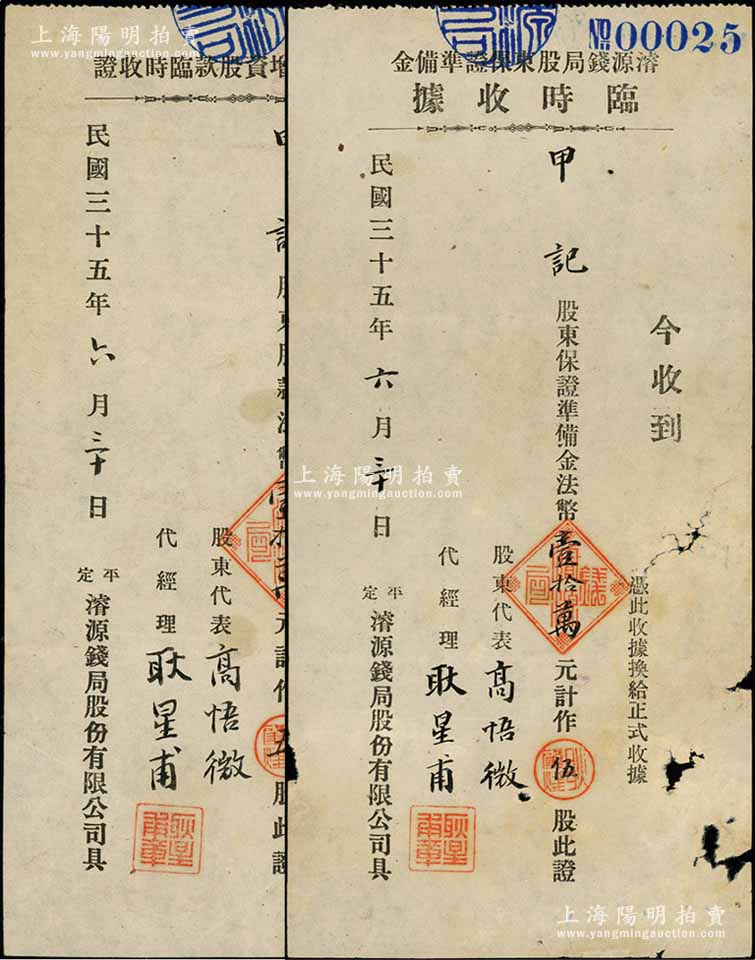 №00025
濬源錢局股東保證準備金
臨時收據
今收到
憑此收據換給正式收據
甲記 股東保證準備金法幣壹拾萬元計作伍股此證
股東代表 高悟微
代經理 耿星甫
民國三十五年六月三十日
平定 濬源錢局股份有限公司具
耿星甫章
增資股款臨時收證
股東代表 高悟微
代經理 耿星甫
民國三十五年六月三十日
平定 濬源錢局股份有限公司具
耿星甫章
上海陽明拍賣
www.yangmingauction.com
上海陽明拍賣
www.yangmingauction.com
上海陽明拍賣
www.yangmingauction.com